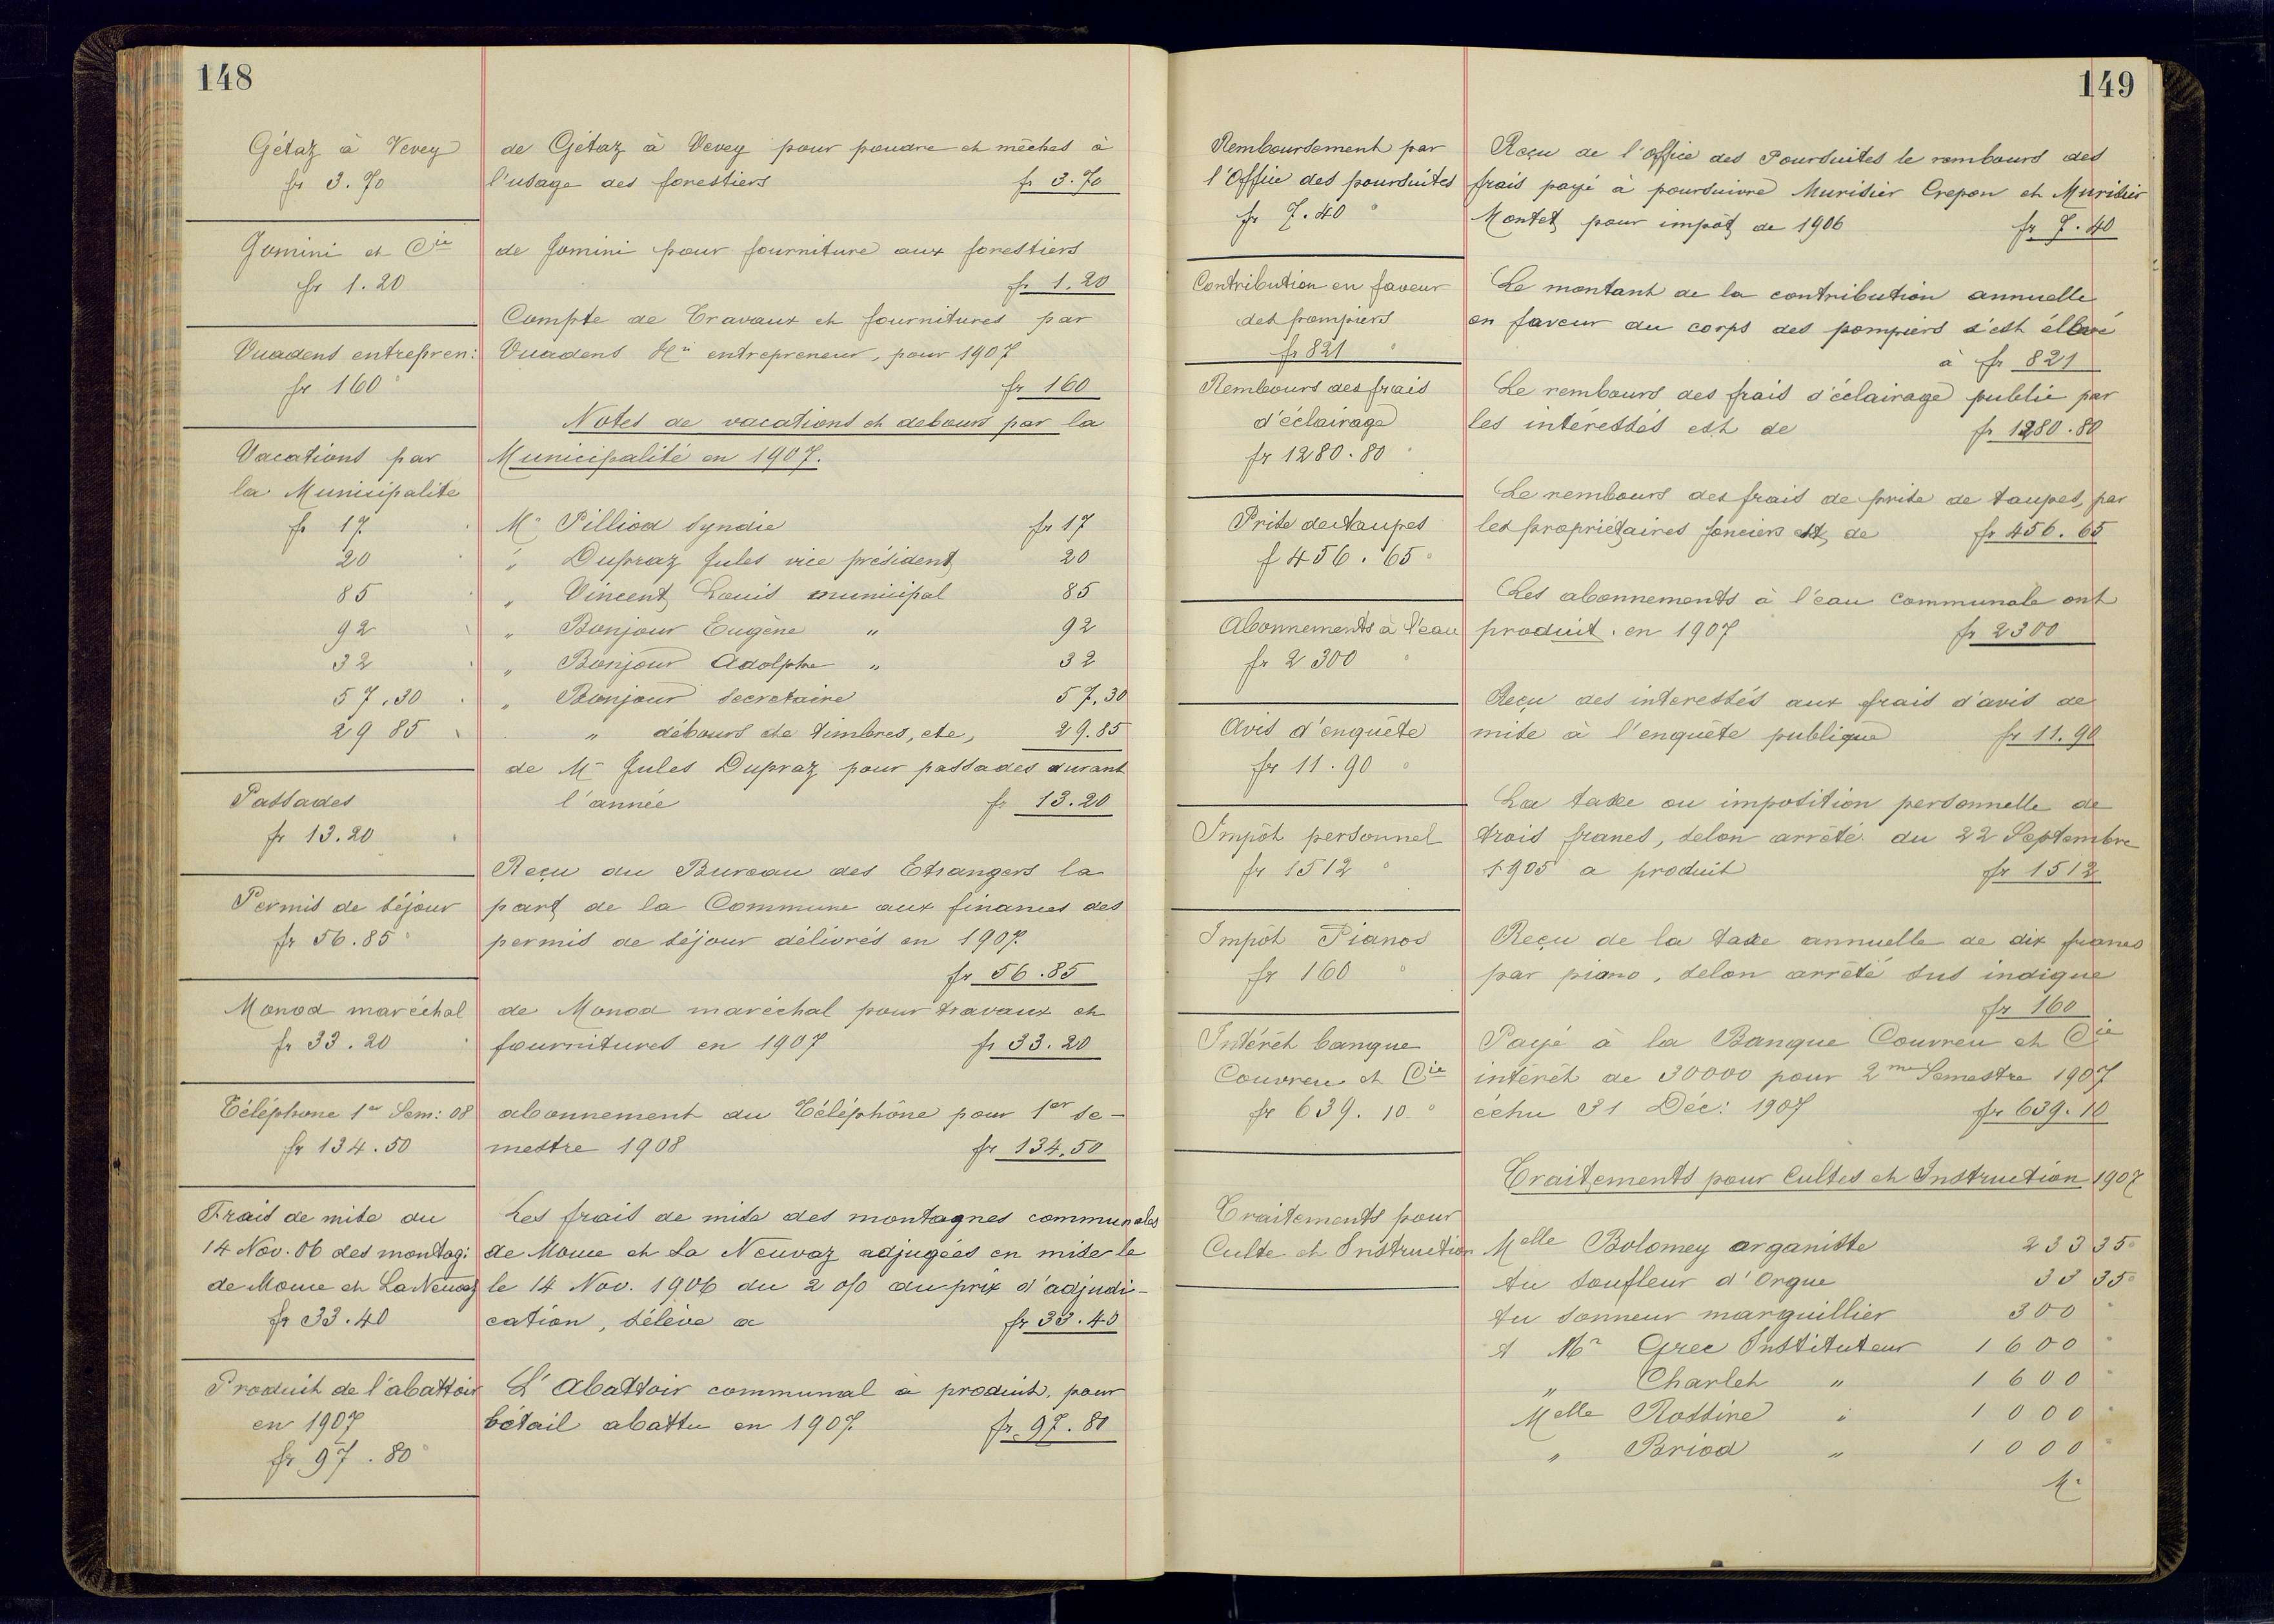 148
Gétaz à Vevey
fr 3.70
de Gétaz à Vevey pour poudre et mêches à
l'usage des forestiers fr 3.70
Jomini et Cie
fr 1.20
de Jomini pour fourniture aux forestiers
fr 1.20
Vuadens entrepren:
fr 160
Compte de Travaux et fournitures par
Vuadens Hri entrepreneur, pour 1907
fr 160
Notes de vacations et debours par la
Municipalité en 1907.
Vacations par
la Municipalite
fr 17
20
85
92
32
57.30
29 85
Mr Pilliod Syndic fr 17
" Dupraz Jules vice président 20
" Vincent Louis municipal 85
" Bonjour Eugène " 92
" Bonjour Adolphe " 32
" Bonjour Secretaire 57,30
" débours de timbres, etc, 29.85
Passades
fr 13.20
de Mr Jules Dupraz pour passades durant
l'année fr 13.20
Permis de séjour
fr 56.85
Reçu du Bureau des Etrangers la
part de la Commune aux finances des
permis de séjour délivrés en 1907.
fr 56.85
Monod maréchal
fr 33.20
de Monod maréchal pour travaux et
fournitures en 1907 fr 33.20
Téléphone 1er Sem: 08
fr 134.50
abonnement au Téléphône pour 1er se-
mestre 1908 fr 134.50
Frais de mise du
14 Nov. 06 des montag:
de Mome et La Neuvaz
fr 33.40
Les frais de mise des montagnes communales
de Mome et La Neuvaz adjugées en mise le
le 14 Nov. 1906 du 2 o/o du prix d'adjudi-
cation, s'élève a fr 33.40
Produit de l'abattoir
en 1907
fr 97.80
L'Abattoir communal a produit, pour
bétail abattu en 1907. fr. 97.80
149
Remboursement par
l'Office des poursuites
fr 7.40
Reçu de l'office des Poursuites le rembours des
frais payé à poursuivre Murisier Crepon et Murisier
Montet pour impôt de 1906 fr 7.40
Contribution en faveur
des pompiers
fr 821
Le montant de la contribution annuelle
en faveur du corps des pompiers s'est éllevé
à fr 821
Rembours des frais
d'éclairage
fr 1280.80
Le rembours des frais d'éclairage public par
les intéressés est de fr 1280.80
Prise de taupes
f 456.65
Le rembours des frais de prise de taupes, par
les propriétaires fonciers est de fr 456.65
Abonnements à l'eau
fr 2300
Les abonnements à l'eau communale ont
produit en 1907 fr 2300
Avis d'enquête
fr 11.90
Reçu des interessés aux frais d'avis de
mise à l'enquête publique fr 11.90
Impôt personnel
fr 1512
La taxe ou imposition personnelle de
trois francs, selon arrêté du 22 Septembre
1905 a produit fr 1512
Impôt Pianos
fr 160
Reçu de la taxe annuelle de dix francs
par piano, selon arrêté sus indique
fr 160
Intérêt banque
Couvreu et Cie
fr 639.10
Payé à la Banque Couvreu et Cie
intérêt de 30000 pour 2me Semestre 1907
échu 31 Déc: 1907 fr 639.10
Traitements pour Cultes et Instruction 1907
Traitements pour
Culte et Instruction
Melle Bolomey organiste 233 35
Au Soufleur d'Orgue 33 35
Au Sonneur marguillier 300
A Mr Grec Instituteur 1600
" Charlet " 1600
Melle Rossine " 1000
" Pariod " 1000
Mr